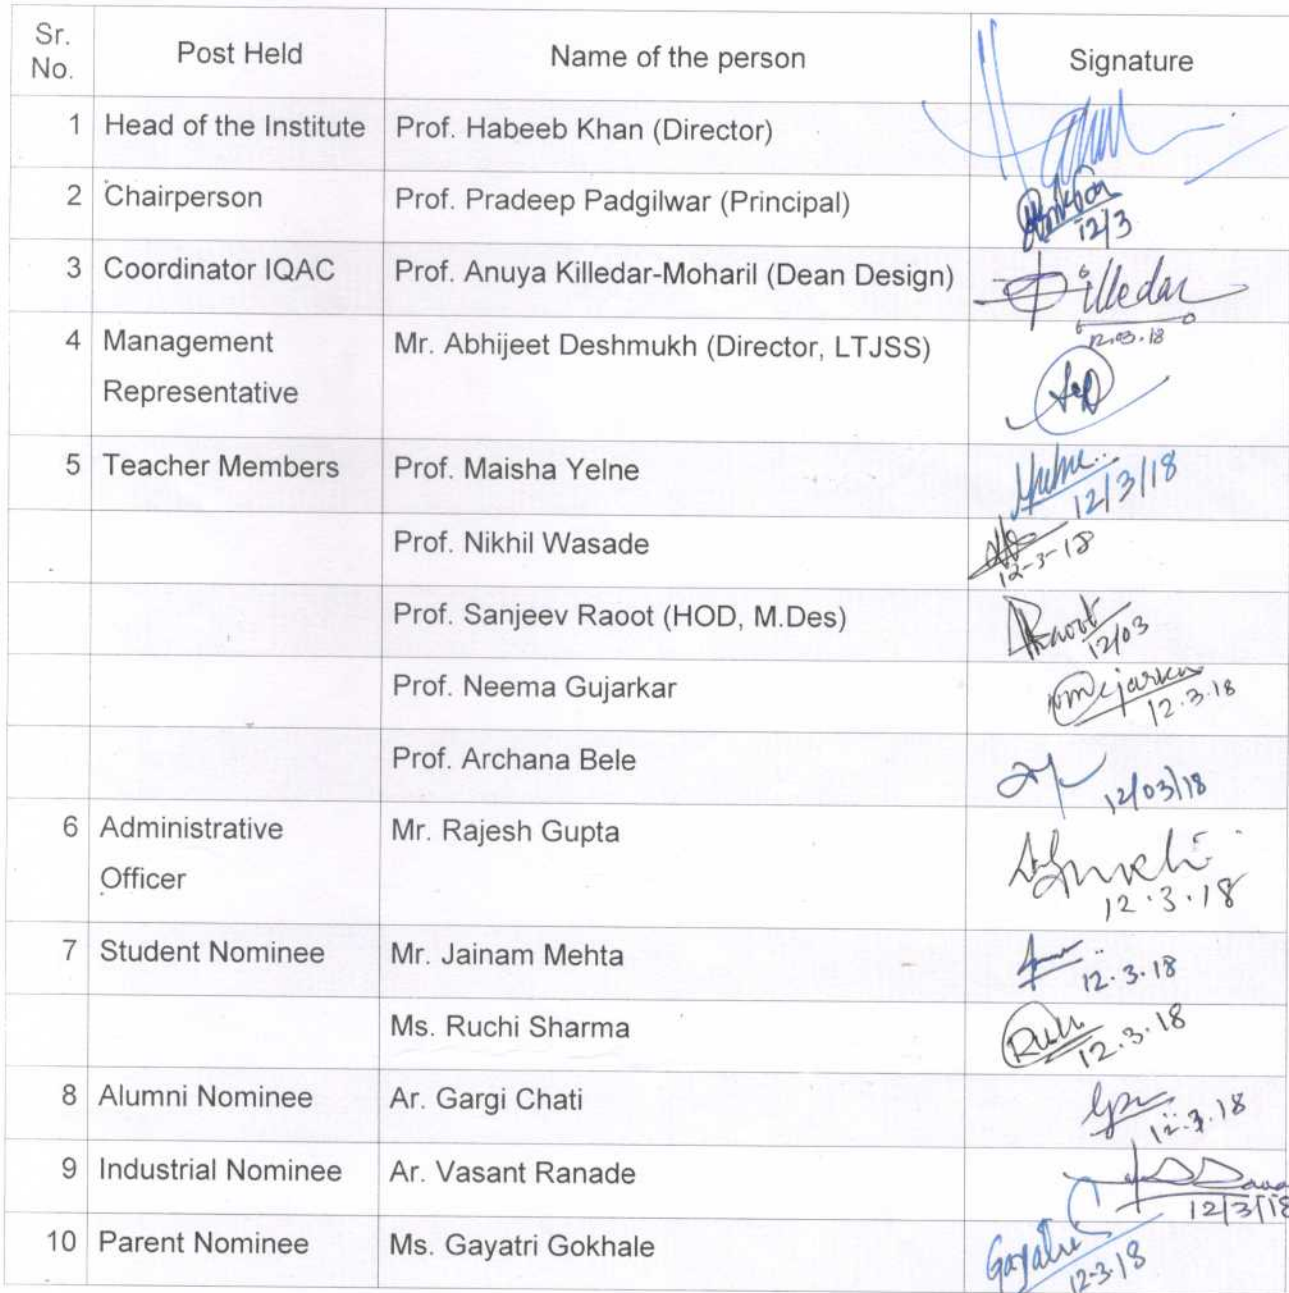 Sr. No. Post Held Name of the person Signature
1 Head of the Institute Prof. Habeeb Khan (Director)
2 Chairperson Prof. Pradeep Padgilwar (Principal)
12/3
3 Coordinator IQAC Prof. Anuya Killedar-Moharil (Dean Design) Killedar
12.03.18
4 Management Mr. Abhijeet Deshmukh (Director, LTJSS)
Representative
5 Teacher Members Prof. Maisha Yelne
12/3/18
Prof. Nikhil Wasade
12-3-18
Prof. Sanjeev Raoot (HOD, M.Des) Raoot
12/03
Prof. Neema Gujarkar
12.3.18
Prof. Archana Bele
12/03/18
6 Administrative Mr. Rajesh Gupta
Officer
12.3.18
7 Student Nominee Mr. Jainam Mehta
12.3.18
Ms. Ruchi Sharma
12.3.18
8 Alumni Nominee Ar. Gargi Chati
12.3.18
9 Industrial Nominee Ar. Vasant Ranade
12/3/18
10 Parent Nominee Ms. Gayatri Gokhale Gayatri
12-3-18